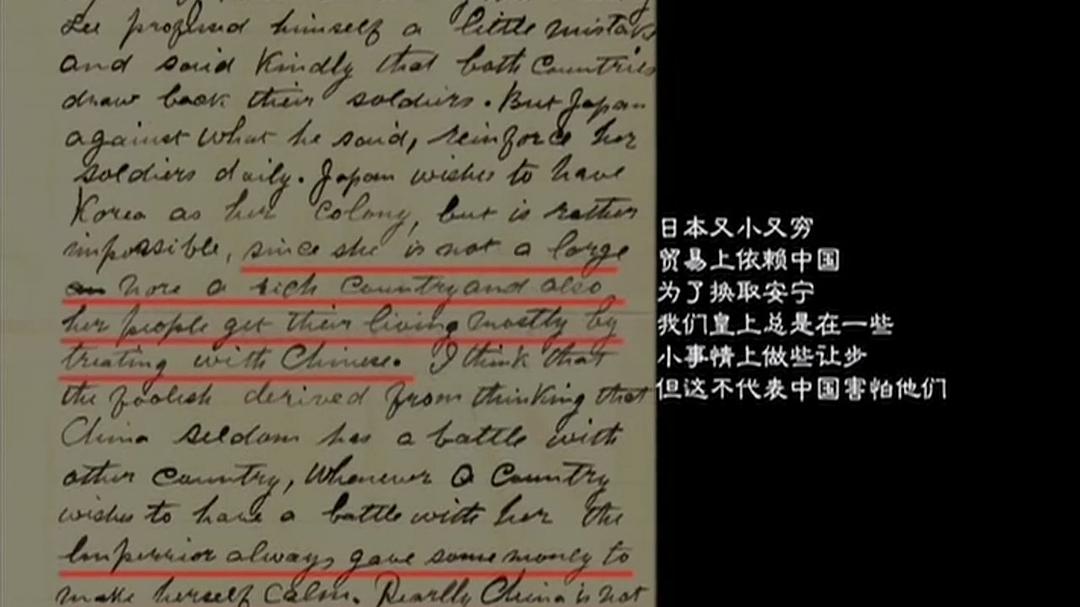 Lee profused himself a little mistake
and said Kindly that both Countries
draw back their soldiers. But Japan
against what he said, reinforce her
soldiers daily. Japan wishes to have
Korea as her colony, but is rather
impossible, since she is not a large
nore a rich Country and also
her people get their living mostly by
treating with Chinese. I think that
the foolish derived from thinking that
China seldom has a battle with
other Country, Whenever a Country
wishes to have a battle with her the
Imperrior always gave some money to
make herself Calm. Pearlly China is not
日本又小又穷
贸易上依赖中国
为了换取安宁
我们皇上总是在一些
小事情上做些让步
但这不代表中国害怕他们